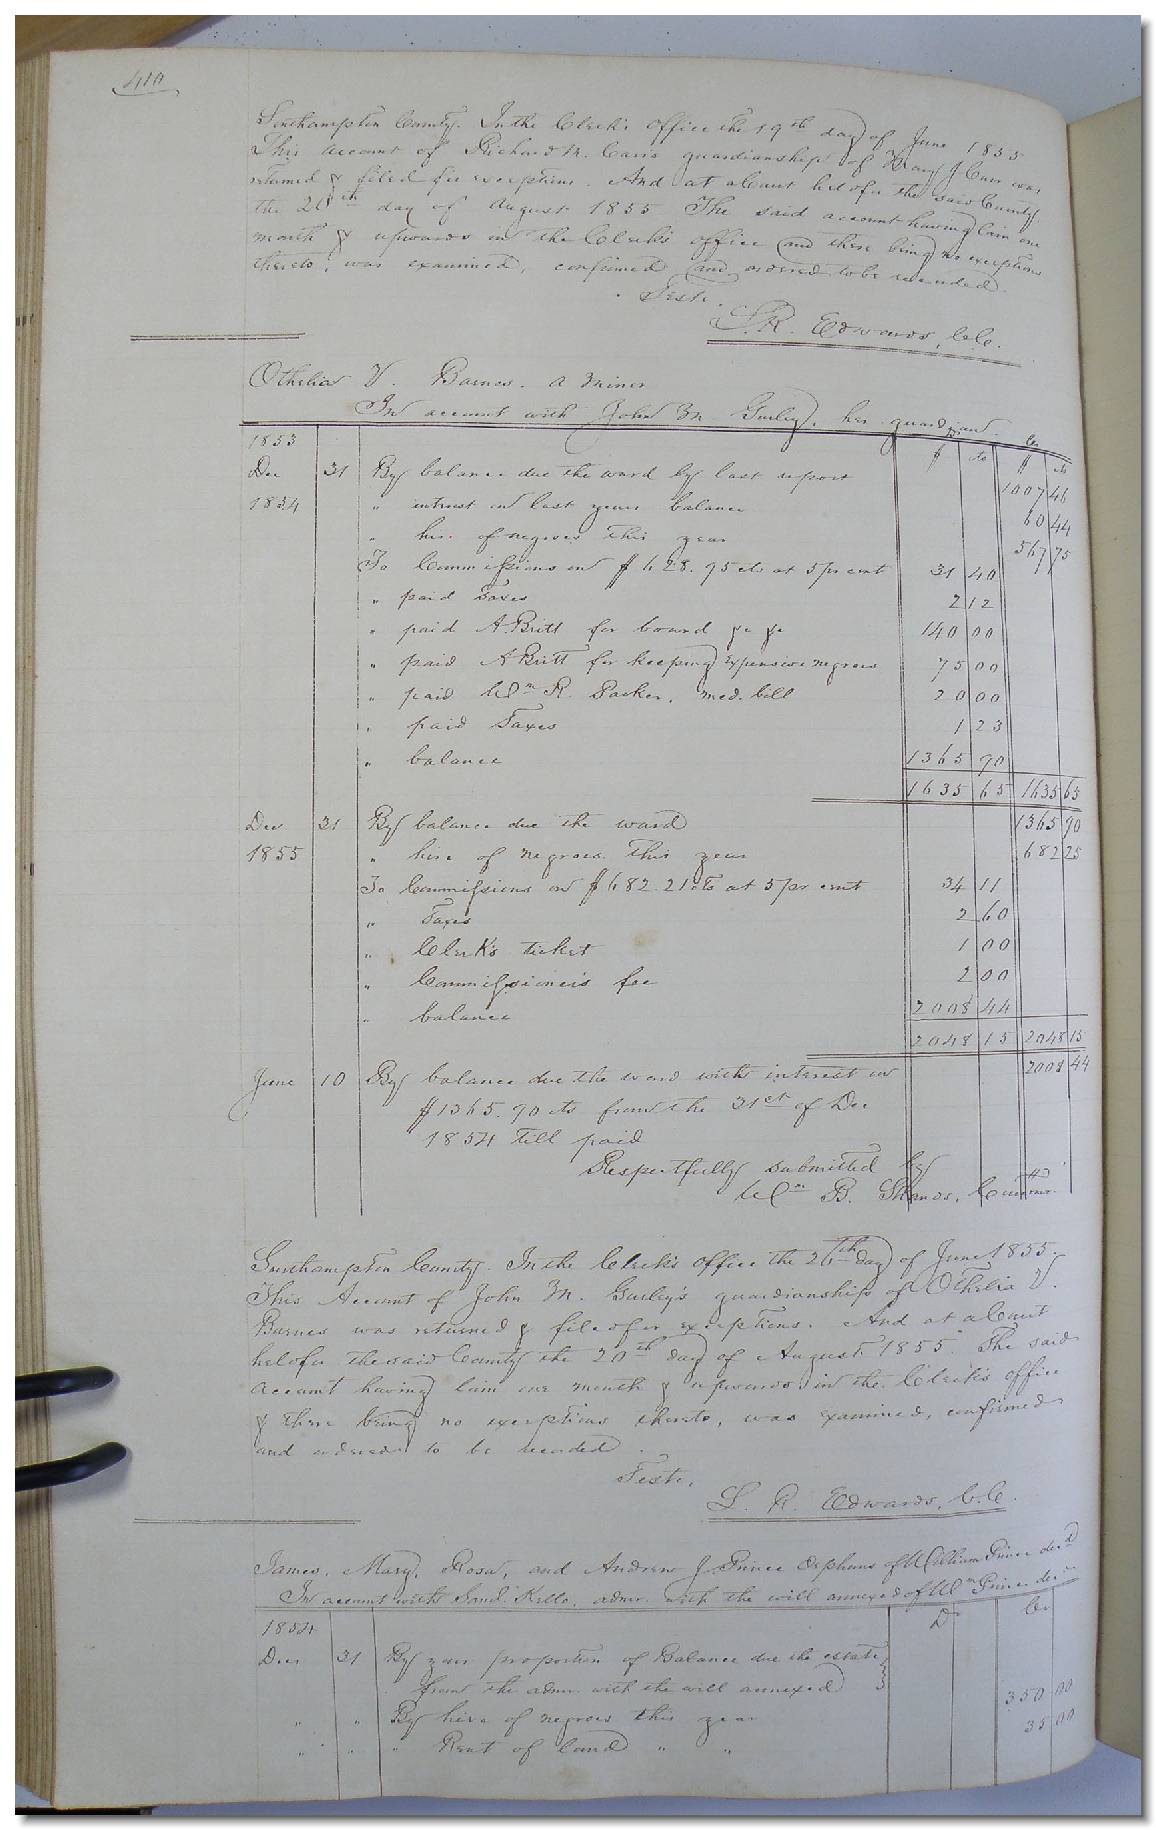 410
Southampton County. In the Clerk's office the 19th day of June 1855
This account of Richard M. Carr's guardianship of Mary J. Carr was
returned & filed for exceptions. And at a Court held for the said County
the 20th day of August 1855 The said account having lain one
month & upwards in the Clerk's office and there being no exceptions
thereto, was examined, confirmed and ordered to be recorded.
Teste.
L. R. Edwards, C.C.
Othelia V. Barnes. a minor
In account with John M. Gurley, her guardian.
1853 $ cts Cr $ cts
Dec 31 By balance due the ward by last report 1007 46
1854 " interest on last years balance 60 44
" hire of negroes this year 567 75
To Commissions on $628.95 cts at 5 pr cent 31 40
" paid Taxes 2 12
" paid A Britt for board &c &c 140 00
" paid A Britt for keeping expensive negroes 75 00
" paid Wm R. Parker, med. bill 20 00
" paid Taxes 1 23
" balance 1365 90
1635 65 1635 65
Dec 31 By balance due the ward 1365 90
1855 " hire of negroes this year 682 25
To Commissions on $682.21 cts at 5 pr cent 34 11
" Taxes 2 60
" Clerk's ticket 1 00
" Commissioner's fee 2 00
" balance 2008 44
2048 15 2048 15
June 10 By balance due the ward with interest on 2008 44
$1365.90 cts from the 31st of Dec
1854 till paid
Respectfully submitted by
Wm B. Shands, Commr.
Southampton County. In the Clerk's office the 26th day of June 1855.
This Account of John M. Gurley's guardianship of Othelia V.
Barnes was returned & filed for exceptions. And at a Court
held for the said County the 20th day of August 1855. The said
account having lain one month & upwards in the Clerk's office
& there being no exceptions thereto, was examined, confirmed
and ordered to be recorded.
Teste.
L. R. Edwards, C.C.
James, Mary, Rosa, and Andrew J. Prince Orphans of William Prince decd
In account with Saml. Kello, admr. with the will annexed of Wm Prince decd
1854 Dr Cr
Dec 31 By your proportion of Balance due the estate
from the admr. with the will annexed 350 00
" " By hire of negroes this year 35 00
" " " Rent of land " "